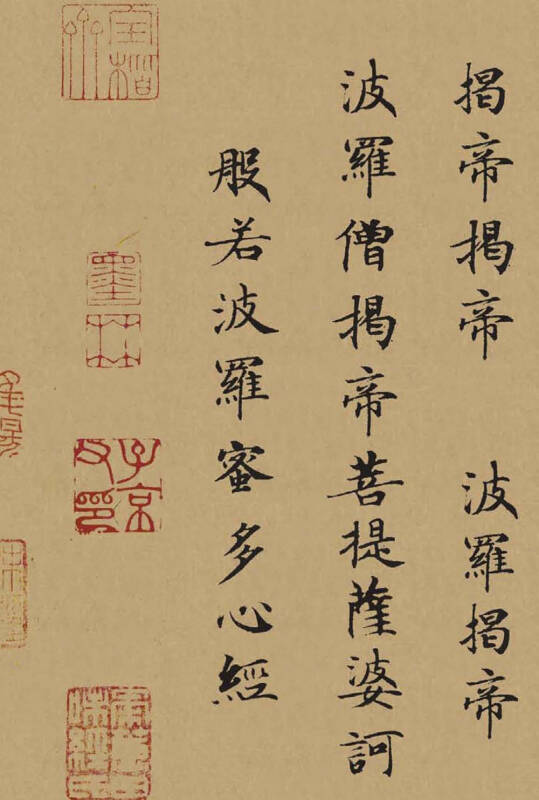 揭帝揭帝 波羅揭帝
波羅僧揭帝菩提薩婆訶
般若波羅蜜多心經
子京父印